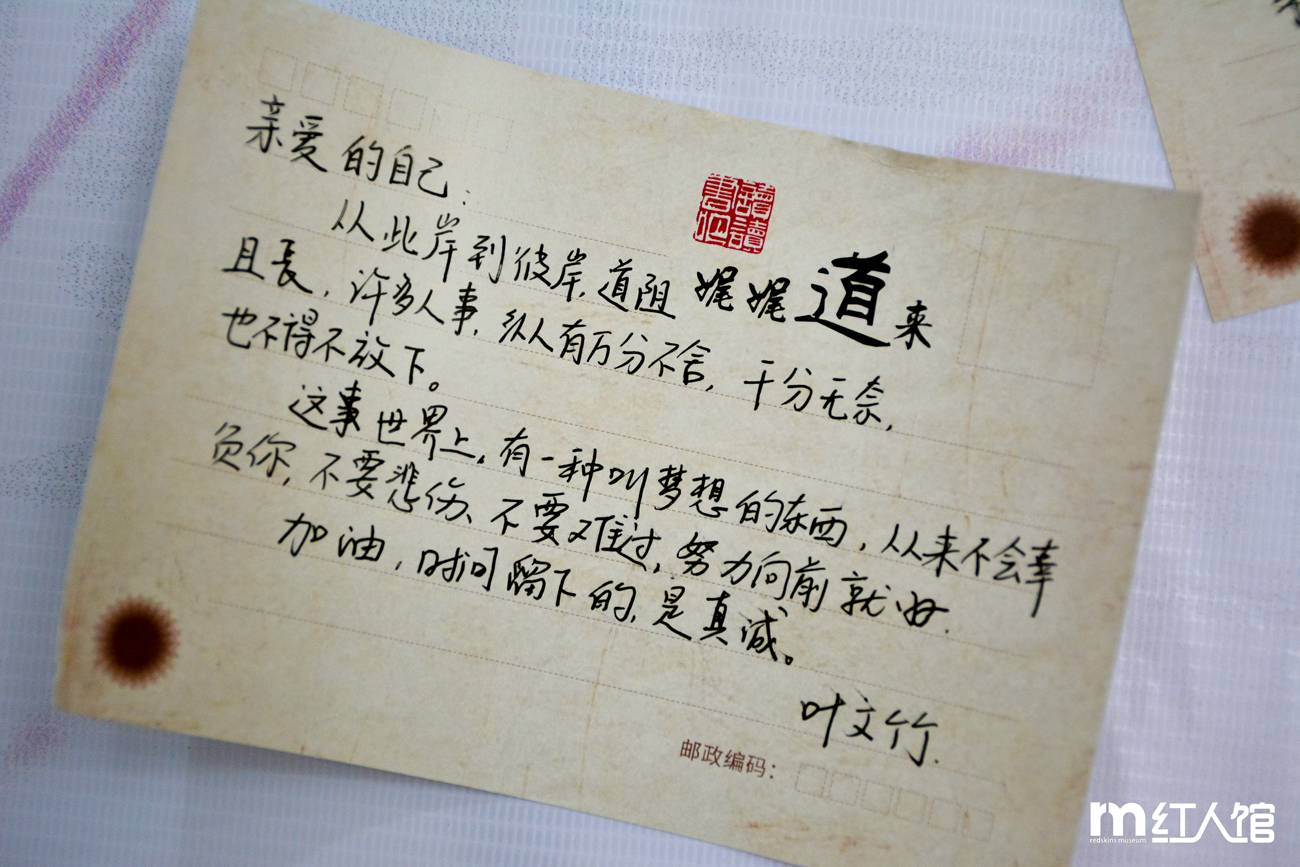 亲爱的自己：
从此岸到彼岸，道阻
娓娓道来
且長，许多人事，纵有万分不舍，千分无奈，
也不得不放下。
这事世界上，有一种叫梦想的东西，从来不会辜
负你，不要悲伤、不要难过，努力向前就好.
加油，时间留下的，是真诚。
叶文竹.
邮政编码：
m红人馆
redskins museum